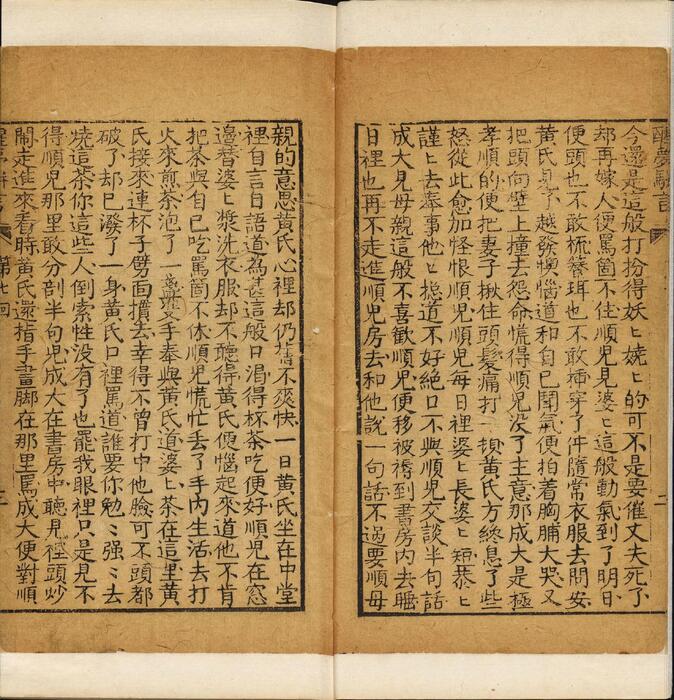 醒夢駢言
二
今還是這般打扮得妖〻嬈〻的可不是要催丈夫死了
却再嫁人便罵箇不住順兒見婆〻這般動氣到了明日
便頭也不敢梳簪珥也不敢插穿了件隋常衣服去問安
黃氏見了越發懊惱道和自己鬬氣便拍着胸脯大哭又
把頭向壁上撞去怨命慌得順兒没了主意那成大是極
孝順的便把妻子揪住頭髮痛打一頓黃氏方終息了些
怒從此愈加怪恨順兒順兒每日裡婆〻長婆〻短恭〻
謹〻去奉事他〻揔道不好絶口不與順兒交談半句話
成大見母親這般不喜歡順兒便移被褥到書房内去睡
日裡也再不走進順兒房去和他說一句話不過要順母
親的意思黃氏心裡却仍舊不爽快一日黃氏坐在中堂
裡自言自語道為甚這般口渴得杯茶吃便好順兒在窓
邊替婆〻漿洗衣服却不聽得黃氏便惱起來道他不肯
把茶與自己吃罵箇不休順兒慌忙丢了手内生活去打
火來煎茶泡了一盞雙手奉與黃氏道婆〻茶在這里黃
氏接來連杯子劈面摜去幸得不曾打中他臉可不頭都
破了却已潑了一身黃氏口裡罵道誰要你勉〻强〻去
燒這茶你這些人倒索性没有了也罷我眼裡只是見不
得順兒那里敢分剖半句兒成大在書房中聽見裡頭炒
鬧走進來看時黃氏還指手畫脚在那里罵成大便對順
醒夢駢言
第七回
三